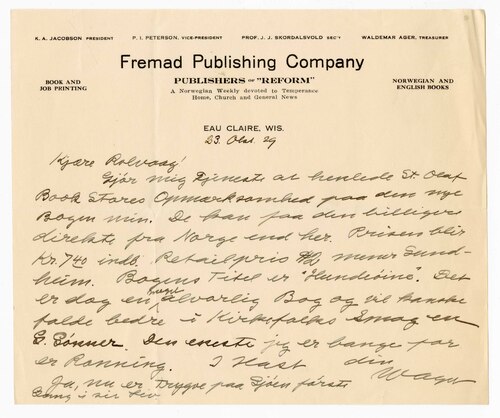 K. A. JACOBSON PRESIDENT P. I. PETERSON, VICE-PRESIDENT PROF. J. J. SKORDALSVOLD SEC'Y WALDEMAR AGER, TREASURER
Fremad Publishing Company
BOOK AND
JOB PRINTING
PUBLISHERS OF "REFORM"
A Norwegian Weekly devoted to Temperance
Home, Church and General News
NORWEGIAN AND
ENGLISH BOOKS
EAU CLAIRE, WIS.
23. Okt. 29
Kjære Rolvaag!
Gjör mig Tjeneste at henlede St. Olaf
Book Stores Opmærksomhed paa den nye
Bogen min. De kan faa den billigere
direkte fra Norge end her. Prisen blir
Kr. 7.40 indb. Retailpris mener Sund-
heim. Bogens Titel er "Hundeöine". Det
er dog en alvorlig Bog og vil kanske
falde bedre i Kirkefolks Smag en
G. Gonner. Den eneste jeg er bange for
er Ronning. I Hast din
W Ager
Ja, nu er Trygve paa Sjöen förste
Gang i sit Liv